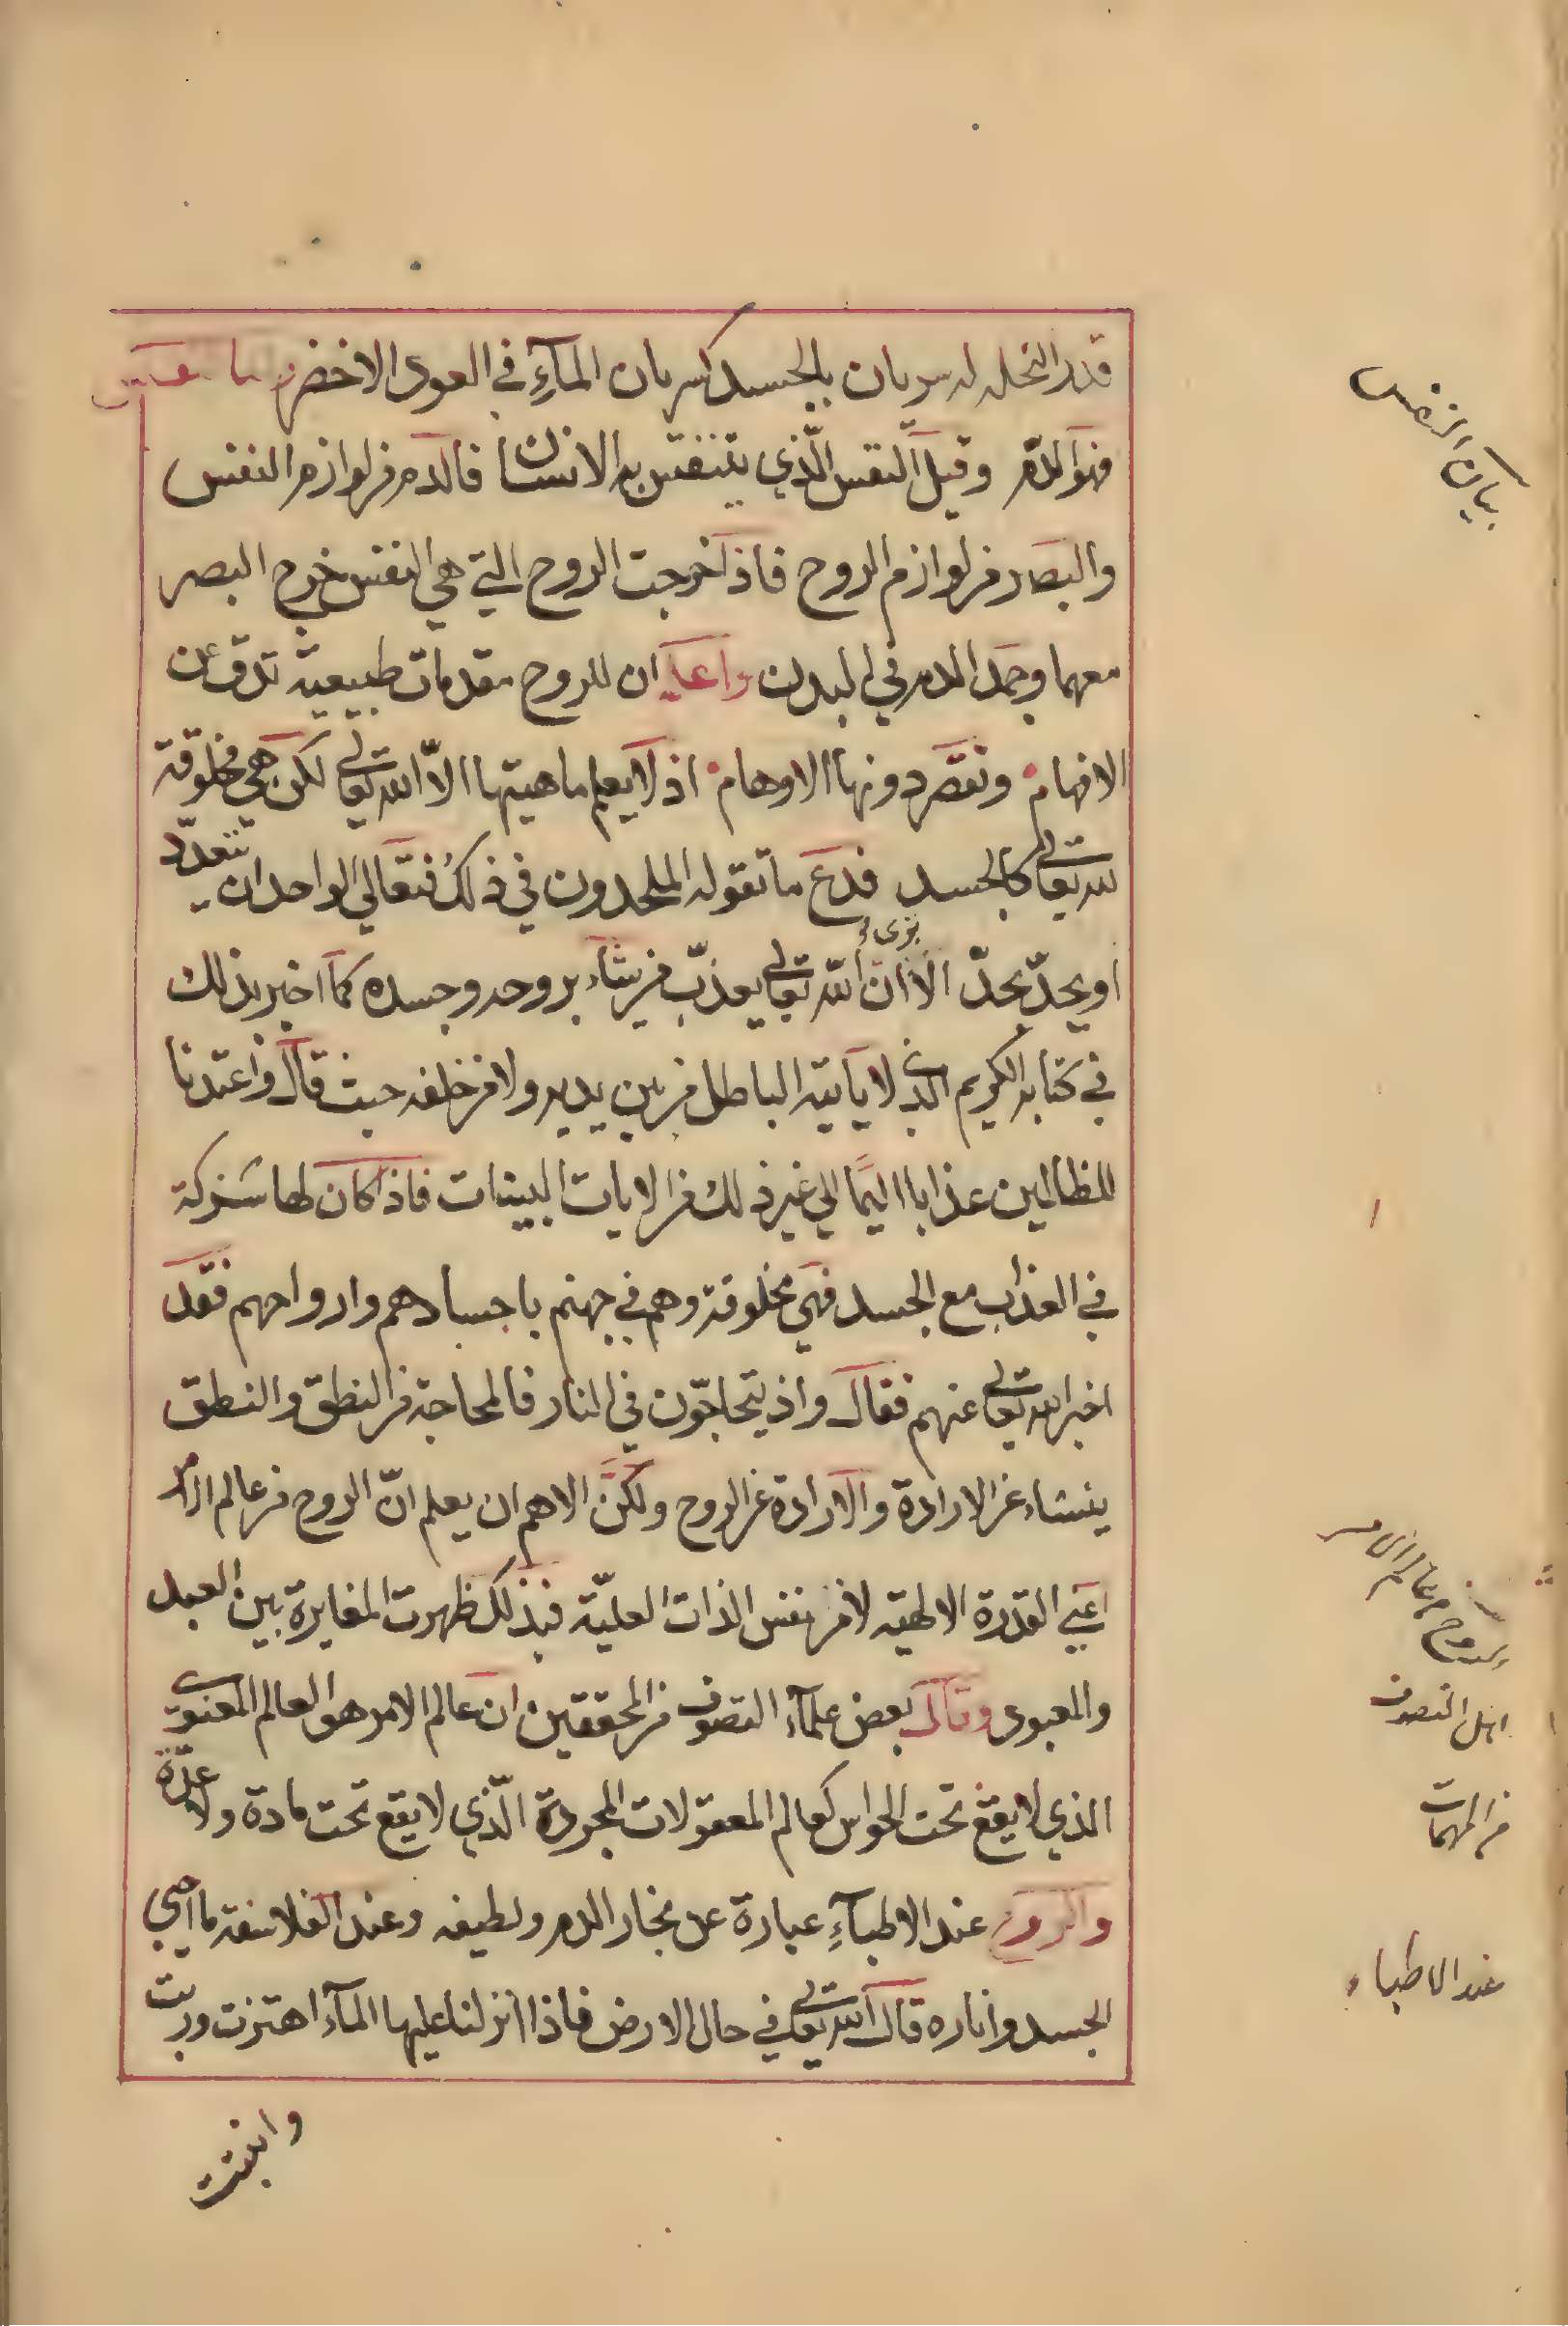 قدر النخله له سريان بالجسد كسريان المآءِ في العود الاخضر واما النفس
فهو الدّم وقيل النفس الّذي يتنفّس به الانسان فالدم من لوازم النفس
والبصر من لوازم الروح فاذا خرجت الروح التي هي النفس خرج البصر
معهما وجمد الدم في البدن واعلم ان للروح مقدمات طبيعية تدق عن
الافهام وتقصر دونها الاوهام اذ لا يعلم ماهيتها الاّ الله تعالى لكن هي مخلوقة
لله تعالى كالجسد فدع ما تقوله الملحدون في ذلك فتعالي الواحد ان يتعدّد
او يحدّ بحدّ الا ترى انّ الله تعالى يعذّب من يشاء بروحه وجسده كما اخبر بذلك
في كتابه الكريم الذي لا يأتيه الباطل من بين يديه ولا من خلفه حيث قال واعتدنا
للظالمين عذابا اليمًا الي غير ذلك من الايات البينات فاذا كان لها شركة
في العذاب مع الجسد فهي مخلوقة وهم في جهنم باجسادهم وارواحهم فقد
اخبر الله تعالى عنهم فقال واذ يتحاجّون في النار فالمحاجة من النطق والنطق
ينشاء عن الارادة والارادة عن الروح ولكنّ الاهم ان يعلم انّ الروح من عالم الامر
اعني القدرة الالهية لا من نفس الذات العليّة فبذلك ظهرت المغايرة بين العبد
والمعبود وقال بعض علمآء التصوف من المحققين ان عالم الامر هو العالم المعنوي
الذي لا يقع تحت الحواس كعالم المعقولات المجردة الّذي لا يقع تحت مادة ولا عدّة
والروح عند الاطبآءِ عبارة عن بخار الدم ولطيفه وعند الفلاسفة ما احيى
الجسد واناره قال الله تعالى في حال الارض فاذا انزلنا عليها المآء اهتزت وربت
وانبتت
بيان النفس
الروح من عالم الامر
اهل التصوف
من المهمات
عند الاطباء